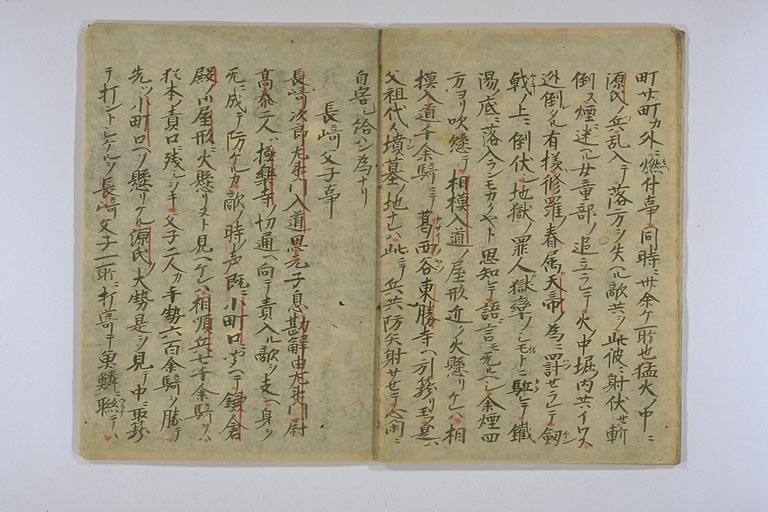 町廿町カ外ニ燃付事同時ニ廿余ケ所也猛火ノ中ニ
源氏ノ兵乱入テ落方ヲ失ヘル敵共ヲ此彼ニ射伏セ斬
倒ス煙ニ迷ヘル女童部ノ追立ラレテ火ノ中堀ノ内共イワス
逃倒タル有様修羅ノ眷属天帝ノ為ニ罸セラレテ剱
戟ノ上ニ倒伏シ地獄ノ罪人獄卒ノシモトニ駈レテ鐵
湯ノ底ニ落入ランモカクヤト思知レテ語ニ言モ无ルヘシ余煙四
方ヨリ吹懸テ相模入道ノ屋形近ク火懸リケレハ相
模入道千余騎ニテ葛西谷東勝寺ヘ引籠リ玉是ハ
父祖代々ノ墳墓ノ地ナレハ此ニテ兵共防矢射サセテ心閑ニ
自害シ給ハン為ナリ
長崎父子事
長崎次郎左衛門入道思元子息勘解由左衛門尉
髙泰二人ハ極樂寺ノ切通ヘ向テ責入ル敵ヲ支テ身ヲ
无ニ成テ防ケルカ敵ノ時ノ声既ニ小町口ニ聞ヘテ鎌倉
殿ノ屋形ニ火懸リヌト見ヘケレハ相順兵七千余騎ヲハ
猶本ノ責口ニ残シヲキ父子二人カ手勢六百余騎ヲ勝テ
先ツ小町口ヘソ懸リケル源氏ノ大勢是ヲ見テ中ニ取籠
テ打ントシケルヲ長崎父子一所ニ打寄テ魚鱗ニ聯テハ